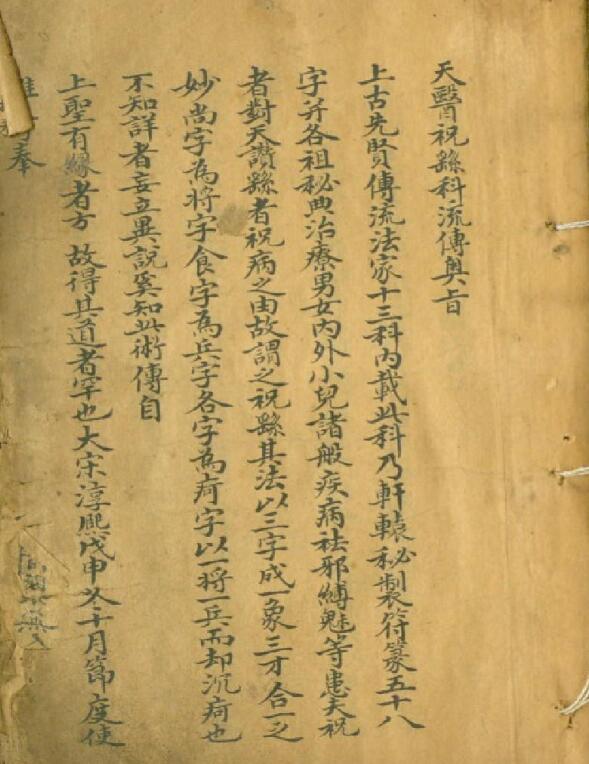 天醫祝繇科流傳奧旨
上古先賢傳流法家十三科內載此科乃軒轅秘製符篆五十八
字并各祖秘典治療男女內外小兒諸般疾病祛邪縛魅等患夫祝
者對天讚繇者祝病之由故謂之祝繇其法以三字成一象三才合一之
妙尚字為將字食字為兵字各字為疴字以一將一兵而却沉疴也
不知詳者妄立異說奚知此術傳自
上聖有緣者方故得其道者罕也大宋淳熙戊申冬十月節度使
奉